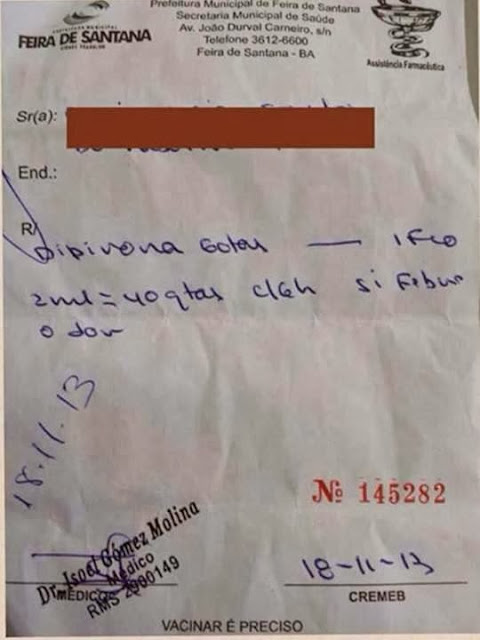 Prefeitura Municipal de Feira de Santana
Secretaria Municipal de Saúde
Av. João Durval Carneiro, s/n
Telefone 3612-6600
Feira de Santana - BA
FEIRA DE SANTANA
Assistência Farmacêutica
Sr(a):
End.:
R/
Dipirona Gotas — 1Fco
2ml=40gtas c/6h si Febre
o dor
18.11.13
Nº 145282
Dr. Isoel Gómez Molina
Médico
RMS 2900149
MÉDICO
18-11-13
CREMEB
VACINAR É PRECISO